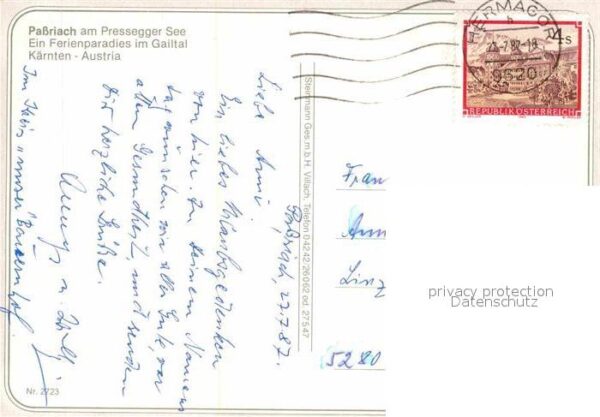 Paßriach am Pressegger See
Ein Ferienparadies im Gailtal
Kärnten - Austria
HERMAGOR
9620
4s
REPUBLIK ÖSTERREICH
Paßriach, 27.7.87.
Liebe Anni!
Ein liebes Urlaubsgedenken
von hier. Zu Deinem Namens
tag wünschen wir alles Gute, vor
allem Gesundheit, und senden
Dir herzliche Grüße.
Im Haus "unser Bauernhof"
Steinmann Ges.m.b.H. Villach, Telefon 04242 26062 od. 27547
Frau
Linz
5280
privacy protection
Datenschutz
Nr. 2723